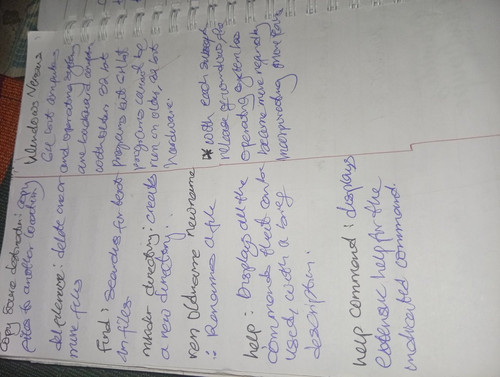 Copy source destination: copy
files to another location
del filename: delete one or
more files
Find: Searches for text
in files
mkdir directory: creates
a new directory.
ren Oldname newname
: Renames a file
help: Displays all the
commands that can be
used, with a brief
description.
help command: displays
extensive help for the
indicated command.
Windows Versions
64 bit computers
and operating systems
are backward compa
with older 32 bit
programs but 64 bit
programs cannot be
run on older, 32 bit
hardware.
* With each
release of windows, the
operating system has
become more
incorporating more